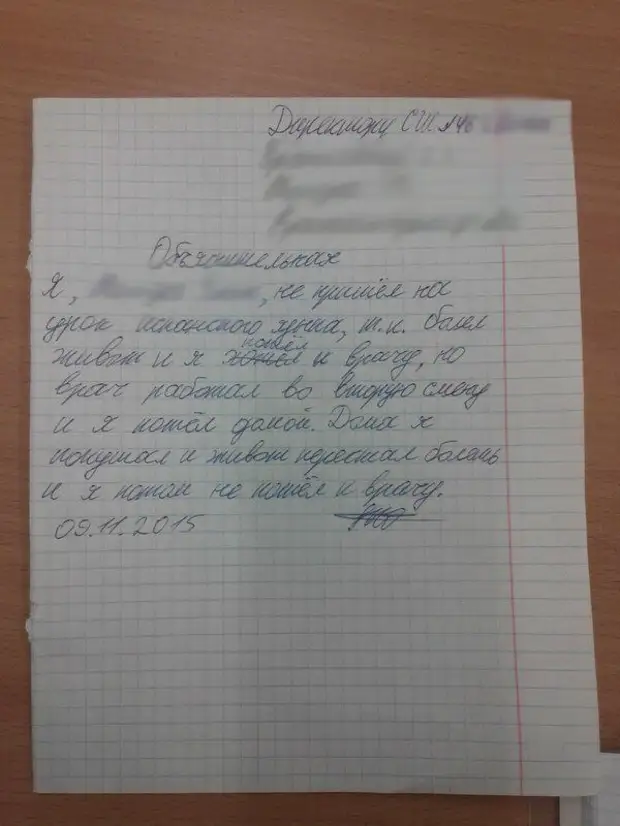 Директору СШ №46
Объяснительная
Я, , не пришёл на
урок испанского языка, т.к. болел
пошёл
живот и я хотел к врачу, но
врач работал во вторую смену
и я пошёл домой. Дома я
покушал и живот перестал болать
и я потом не пошёл к врачу.
09.11.2015